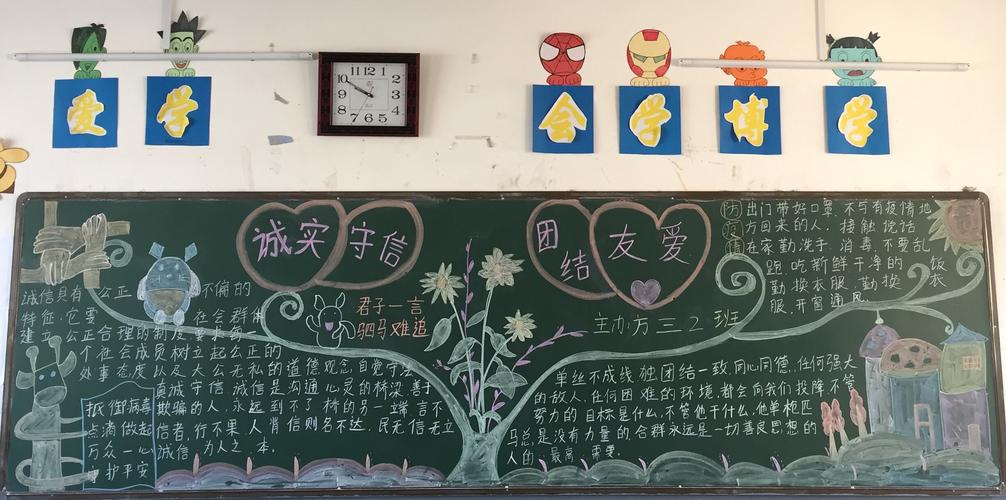 爱 学
会 学 博 学
12 1 2 3 4 5 6 7 8 9 10 11
诚实 守信
团结 友爱
诚信具有 公正 不偏的
特征,它要 在社会群体
建立 公正合理的制度,要求每
个社会成员树立起公正的
处事态度以及大公无私的道德观念,自觉守法
真诚守信,诚信是沟通心灵的桥梁,善于
欺骗的人,永远到不了桥的另一端,言不
信者,行不果,人背信则名不达,民无信无立
诚信,为人之本.
抵御病毒
点滴做起
万众一心
守护平安
君子一言
驷马难追
主办方三2班
防疫情
出门带好口罩,不与有疫情地
方回来的人,接触,说话
在家勤洗手,消毒,不要乱
跑,吃新鲜干净的 饭
勤换衣服,勤换 衣
服,开窗通风.
单丝不成线,独团结一致,同心同德,任何强大
的敌人,任何困难的环境,都会向我们投降,不管
努力的目标是什么,不管他干什么,他单枪匹
马总是没有力量的,合群永远是一切善良思想的
人的最高需要.